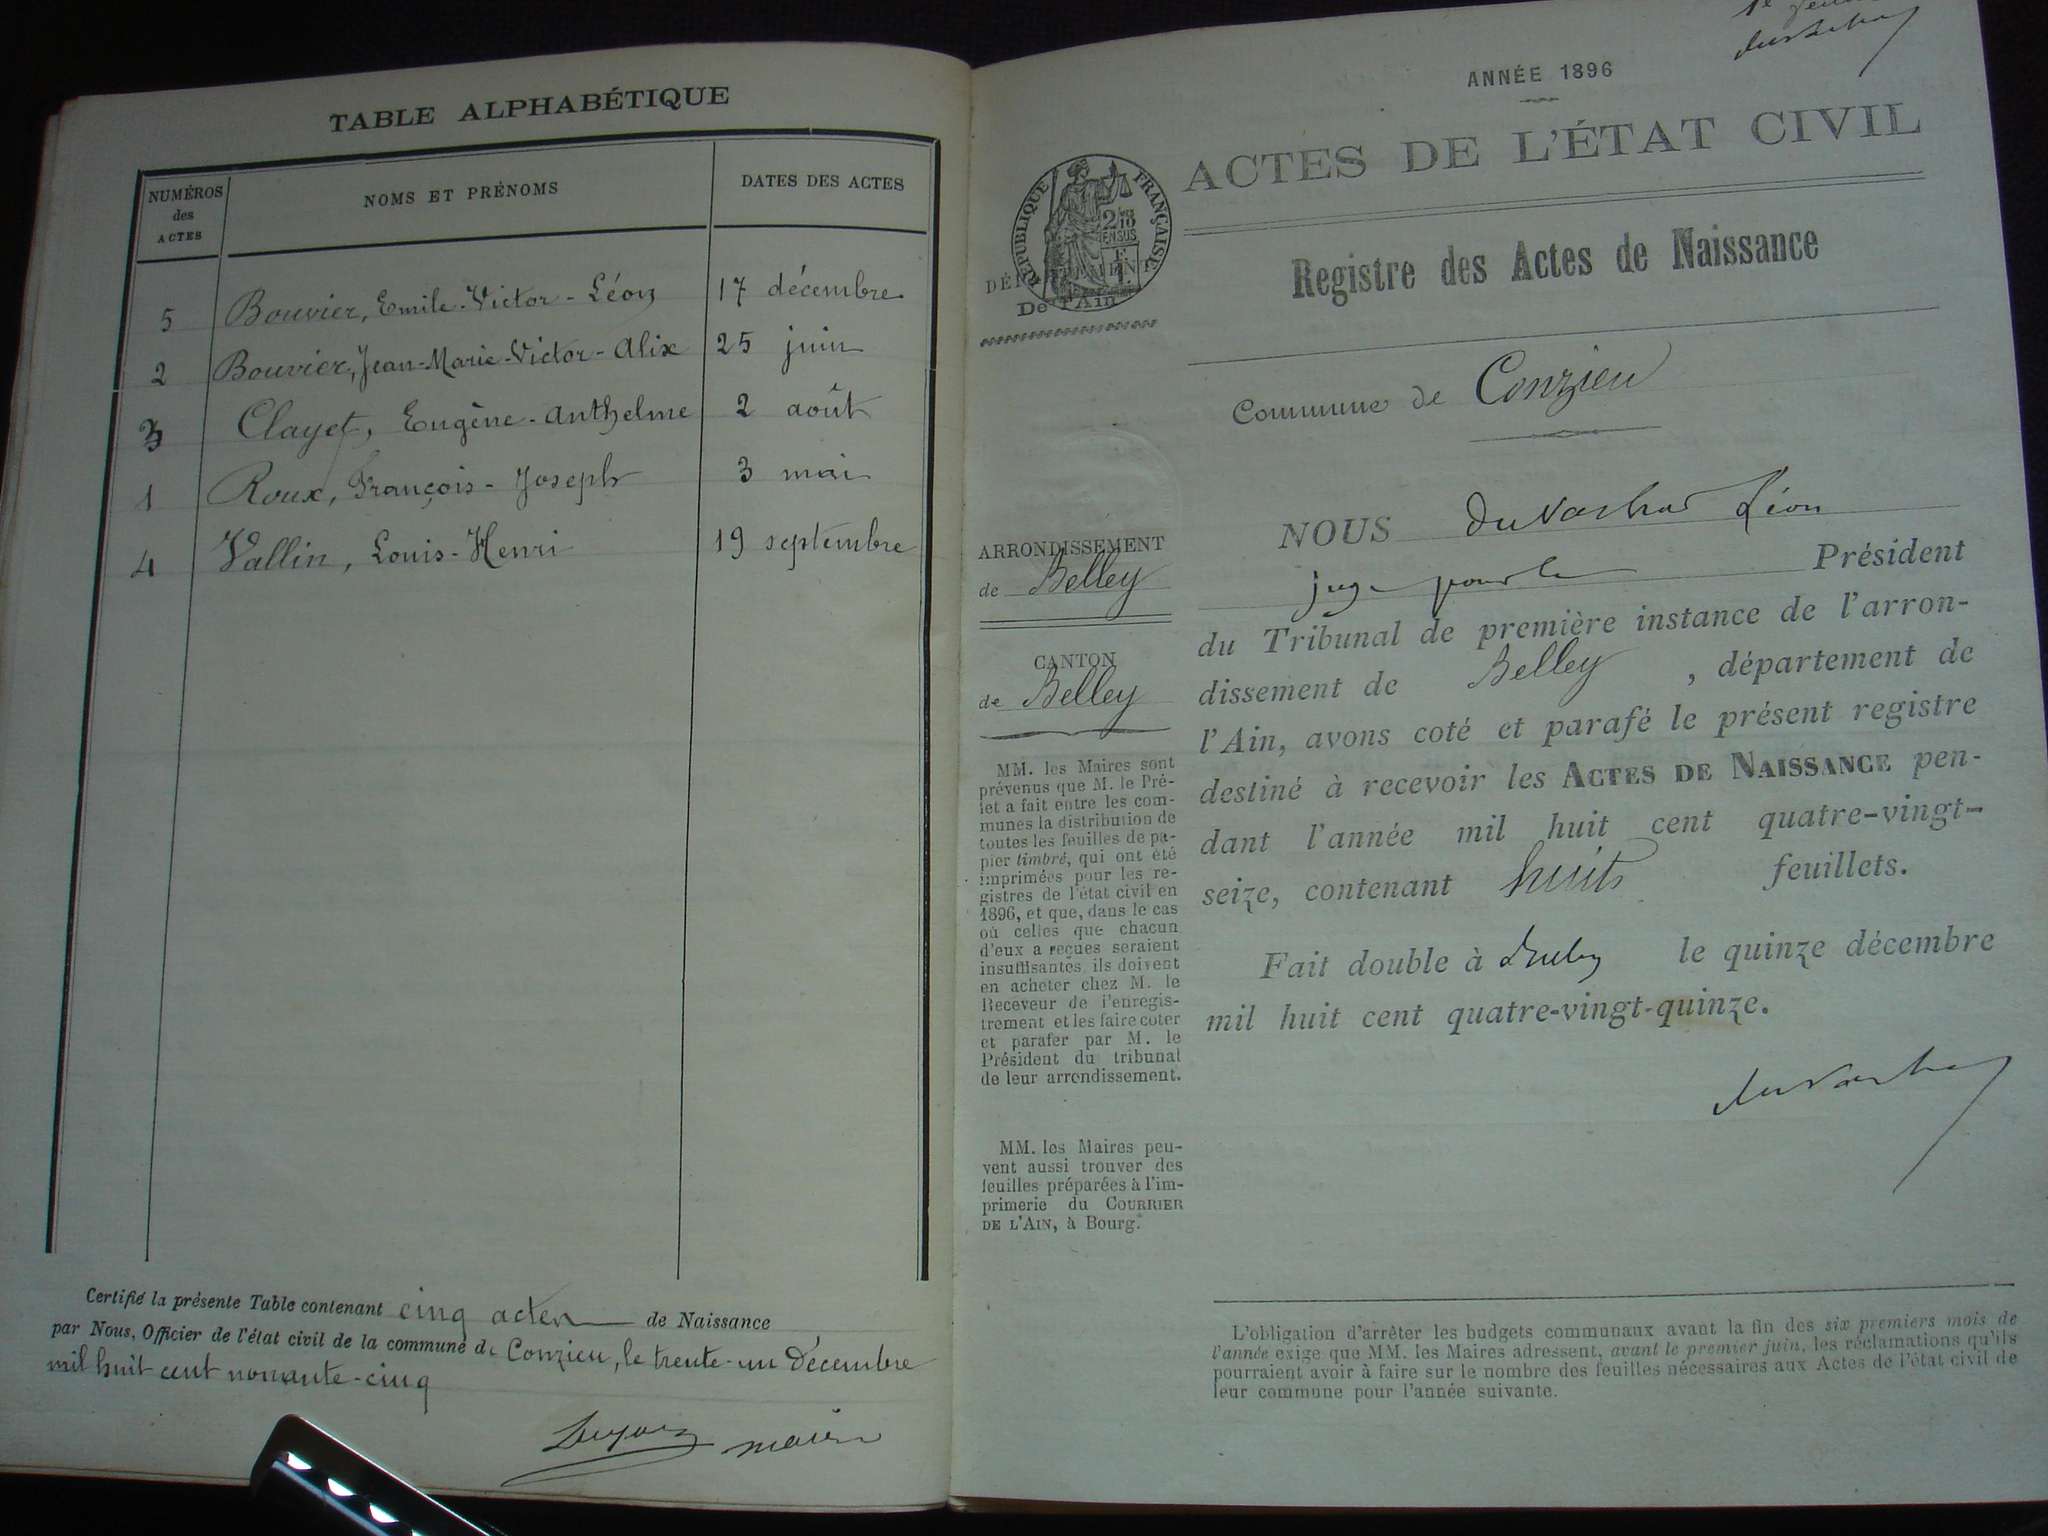 TABLE ALPHABÉTIQUE
NUMÉROS des ACTES
NOMS ET PRÉNOMS
DATES DES ACTES
5 Bouvier, Emile-Victor-Léon 17 décembre
2 Bouvier, Jean-Marie-Victor-Alix 25 juin
3 Clayet, Eugène-Anthelme 2 août
1 Roux, François-Joseph 3 mai
4 Vallin, Louis-Henri 19 septembre
Certifié la présente Table contenant cinq actes de Naissance
par Nous, Officier de l'état civil de la commune de Conzieu, le trente-un Décembre
mil huit cent nonante-cinq
maire
ANNÉE 1896
ACTES DE L'ÉTAT CIVIL
RÉPUBLIQUE FRANÇAISE
2/10 EN SUS
DÉPARTEMENT
De l'Ain
Registre des Actes de Naissance
Commune de Conzieu
ARRONDISSEMENT
de Belley
CANTON
de Belley
MM. les Maires sont
prévenus que M. le Pré-
fet a fait entre les com-
munes la distribution de
toutes les feuilles de pa-
pier timbré, qui ont été
imprimées pour les re-
gistres de l'état civil en
1896, et que, dans le cas
où celles que chacun
d'eux a reçues seraient
insuffisantes, ils doivent
en acheter chez M. le
Receveur de l'enregis-
trement et les faire coter
et parafer par M. le
Président du tribunal
de leur arrondissement.
MM. les Maires peu-
vent aussi trouver des
feuilles préparées à l'im-
primerie du COURRIER
DE L'AIN, à Bourg.
NOUS Léon
juge pour le Président
du Tribunal de première instance de l'arron-
dissement de Belley, département de
l'Ain, avons coté et parafé le présent registre
destiné à recevoir les ACTES DE NAISSANCE pen-
dant l'année mil huit cent quatre-vingt-
seize, contenant huits feuillets.
Fait double à le quinze décembre
mil huit cent quatre-vingt-quinze.
L'obligation d'arrêter les budgets communaux avant la fin des six premiers mois de
l'année exige que MM. les Maires adressent, avant le premier juin, les réclamations qu'ils
pourraient avoir à faire sur le nombre des feuilles nécessaires aux Actes de l'état civil de
leur commune pour l'année suivante.